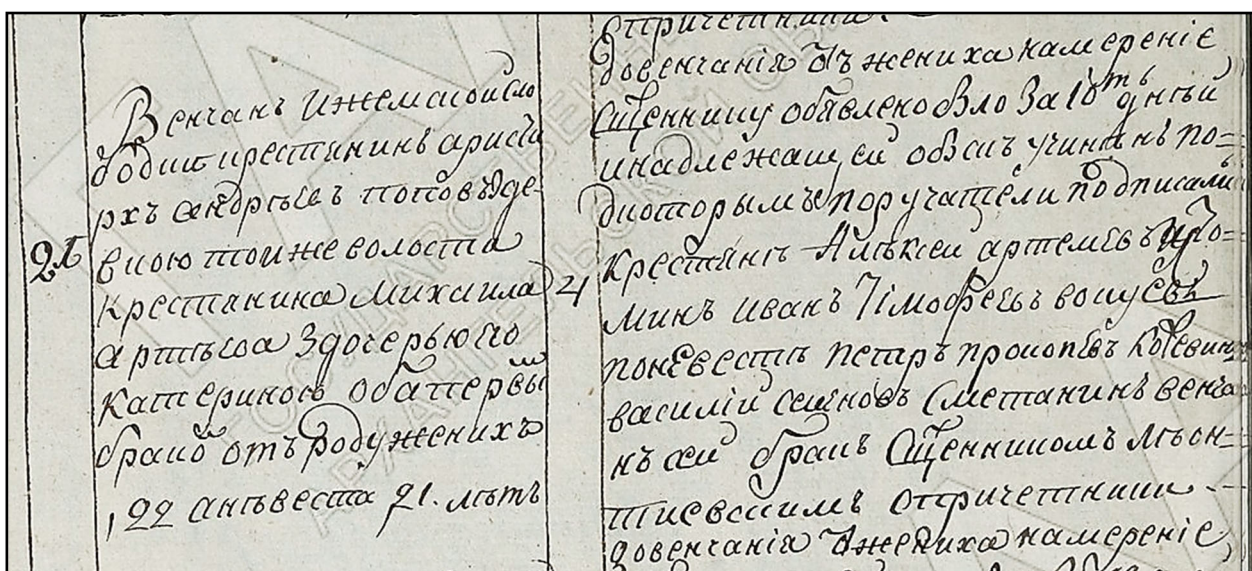 21
Венчанъ Ижемской сло
бодки крестининъ ариста
рхъ андреевъ поповъ з де-
вкою тоиже волости
крестянина Михаила
артѣева з дочерью его
катериною оба первы
бракомъ отъ роду жениху
22 а невеста 21. летъ
4
с причетники.
до венчанія отъ жениха намереніе
Сщеннику обявлено было за 10ть дней
и надлежащей обыскъ учиненъ по-
д которымъ поручатели подписали
крестяне Алексеи артемьевъ
минъ иванъ Тимофеевъ
по невесте петръ прокопьевъ
василіи семеновъ Сметанинъ венча
нъ сей бракъ Сщенникомъ
с причетники
до венчанія отъ жениха намереніе